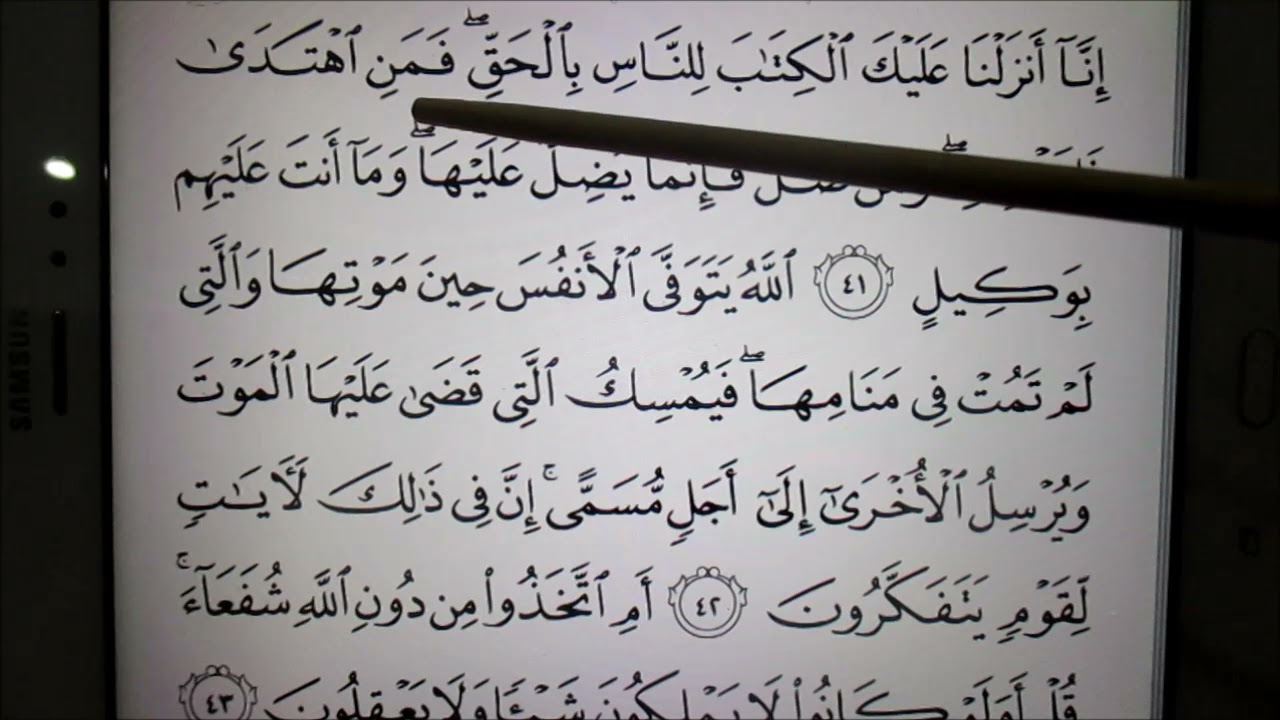 إِنَّآ أَنزَلۡنَا عَلَيۡكَ ٱلۡكِتَٰبَ لِلنَّاسِ بِٱلۡحَقِّۖ فَمَنِ ٱهۡتَدَىٰ
ضَلَّ فَإِنَّمَا يَضِلُّ عَلَيۡهَاۖ وَمَآ أَنتَ عَلَيۡهِم
بِوَكِيلٍ ٤١ ٱللَّهُ يَتَوَفَّى ٱلۡأَنفُسَ حِينَ مَوۡتِهَا وَٱلَّتِي
لَمۡ تَمُتۡ فِي مَنَامِهَاۖ فَيُمۡسِكُ ٱلَّتِي قَضَىٰ عَلَيۡهَا ٱلۡمَوۡتَ
وَيُرۡسِلُ ٱلۡأُخۡرَىٰٓ إِلَىٰٓ أَجَلٖ مُّسَمًّىۚ إِنَّ فِي ذَٰلِكَ لَأٓيَٰتٖ
لِّقَوۡمٖ يَتَفَكَّرُونَ ٤٢ أَمِ ٱتَّخَذُواْ مِن دُونِ ٱللَّهِ شُفَعَآءَۚ
قُلۡ أَوَلَوۡ كَانُواْ لَا يَمۡلِكُونَ شَيۡـٔٗا وَلَا يَعۡقِلُونَ ٤٣
SAMSUNG